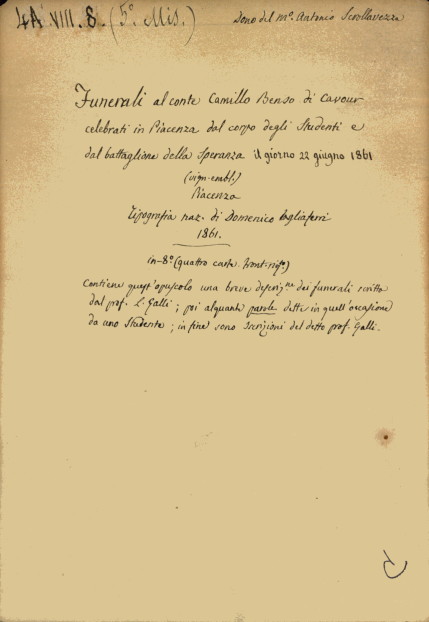 4A. VIII. 8. (5º Mis.)
Dono del Mº. Antonio Scrollavezza
Funerali al conte Camillo Benso di Cavour
celebrati in Piacenza dal corpo degli Studenti e
dal battaglione della Speranza il giorno 22 giugno 1861
(vign. embl.)
Piacenza
Tipografia naz. di Domenico Tagliaferri
1861.
in-8º (quattro carte. Front-rifº)
Contiene quest'opuscolo una breve descrizne dei funerali scritta
dal prof. L. Galli; poi alquanti parole dette in quell'occasione
da uno Studente; in fine sono Iscrizioni del detto prof. Galli.